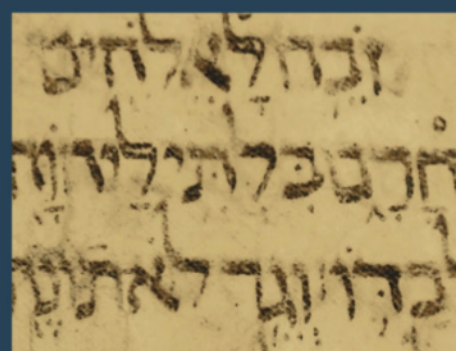 זֹבֵחַ לָאֱלֹהִים
חֳרָם בִּלְתִּי לַיהוָֹה
לְבַדּוֹ וְגֵר לֹא תוֹנֶה